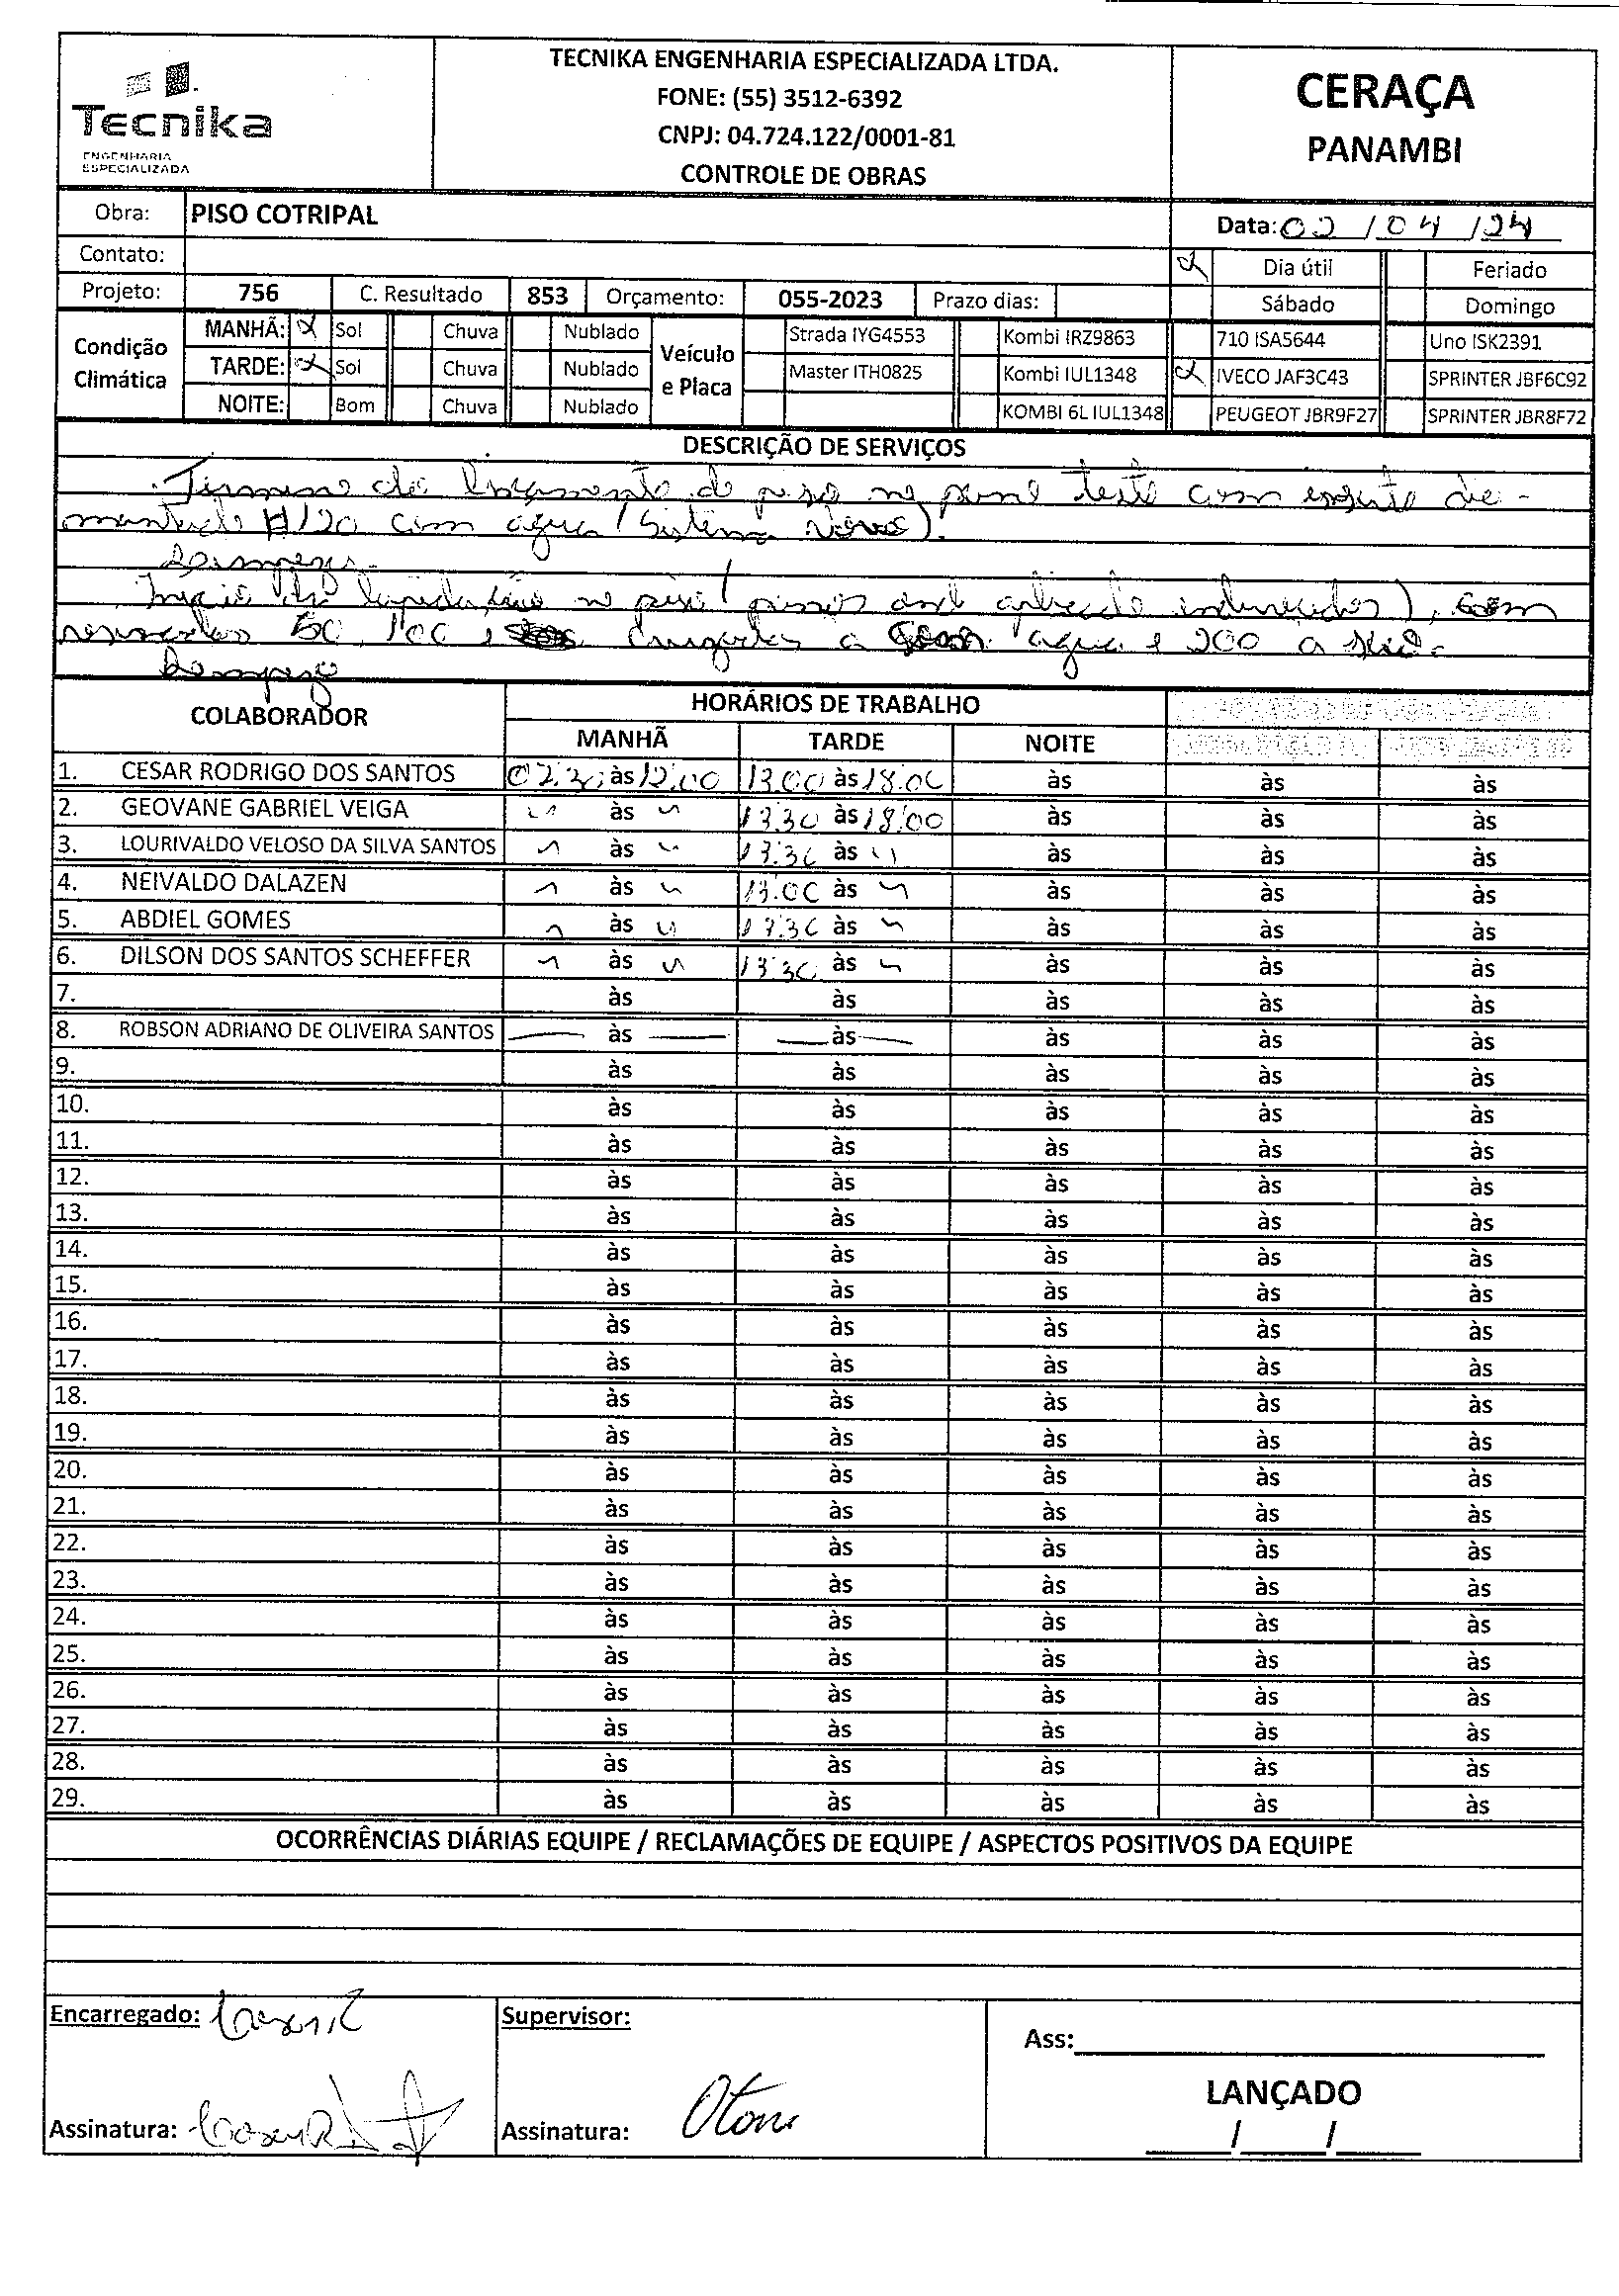 Tecnika
ENGENHARIA
ESPECIALIZADA
TECNIKA ENGENHARIA ESPECIALIZADA LTDA.
FONE: (55) 3512-6392
CNPJ: 04.724.122/0001-81
CONTROLE DE OBRAS
CERAÇA
PANAMBI
Obra: PISO COTRIPAL
Data: 02 / 04 / 24
Contato:
Dia útil Feriado
Projeto: 756 C. Resultado 853 Orçamento: 055-2023 Prazo dias:
Sábado Domingo
Condição Climática
MANHÃ: Sol Chuva Nublado
TARDE: Sol Chuva Nublado
NOITE: Bom Chuva Nublado
Veículo e Placa
Strada IYG4553 Kombi IRZ9863 710 ISA5644 Uno ISK2391
Master ITH0825 Kombi IUL1348 IVECO JAF3C43 SPRINTER JBF6C92
KOMBI 6L IUL1348 PEUGEOT JBR9F27 SPRINTER JBR8F72
DESCRIÇÃO DE SERVIÇOS
do piso no teste com
#120 com agua (Sistema Novo).
no piso
50, 100, a agua e 200 a
COLABORADOR HORÁRIOS DE TRABALHO
MANHÃ TARDE NOITE
1. CESAR RODRIGO DOS SANTOS 07:30 às 12:00 13:00 às 18:00 às às às
2. GEOVANE GABRIEL VEIGA às 13:30 às 18:00 às às às
3. LOURIVALDO VELOSO DA SILVA SANTOS às 13:30 às às às às
4. NEIVALDO DALAZEN às 13:00 às às às às
5. ABDIEL GOMES às 13:30 às às às às
6. DILSON DOS SANTOS SCHEFFER às 13:30 às às às às
7. às às às às às
8. ROBSON ADRIANO DE OLIVEIRA SANTOS às às às às às
9. às às às às às
10. às às às às às
11. às às às às às
12. às às às às às
13. às às às às às
14. às às às às às
15. às às às às às
16. às às às às às
17. às às às às às
18. às às às às às
19. às às às às às
20. às às às às às
21. às às às às às
22. às às às às às
23. às às às às às
24. às às às às às
25. às às às às às
26. às às às às às
27. às às às às às
28. às às às às às
29. às às às às às
OCORRÊNCIAS DIÁRIAS EQUIPE / RECLAMAÇÕES DE EQUIPE / ASPECTOS POSITIVOS DA EQUIPE
Encarregado:
Supervisor:
Ass:
LANÇADO
Assinatura:
Assinatura:
/ /